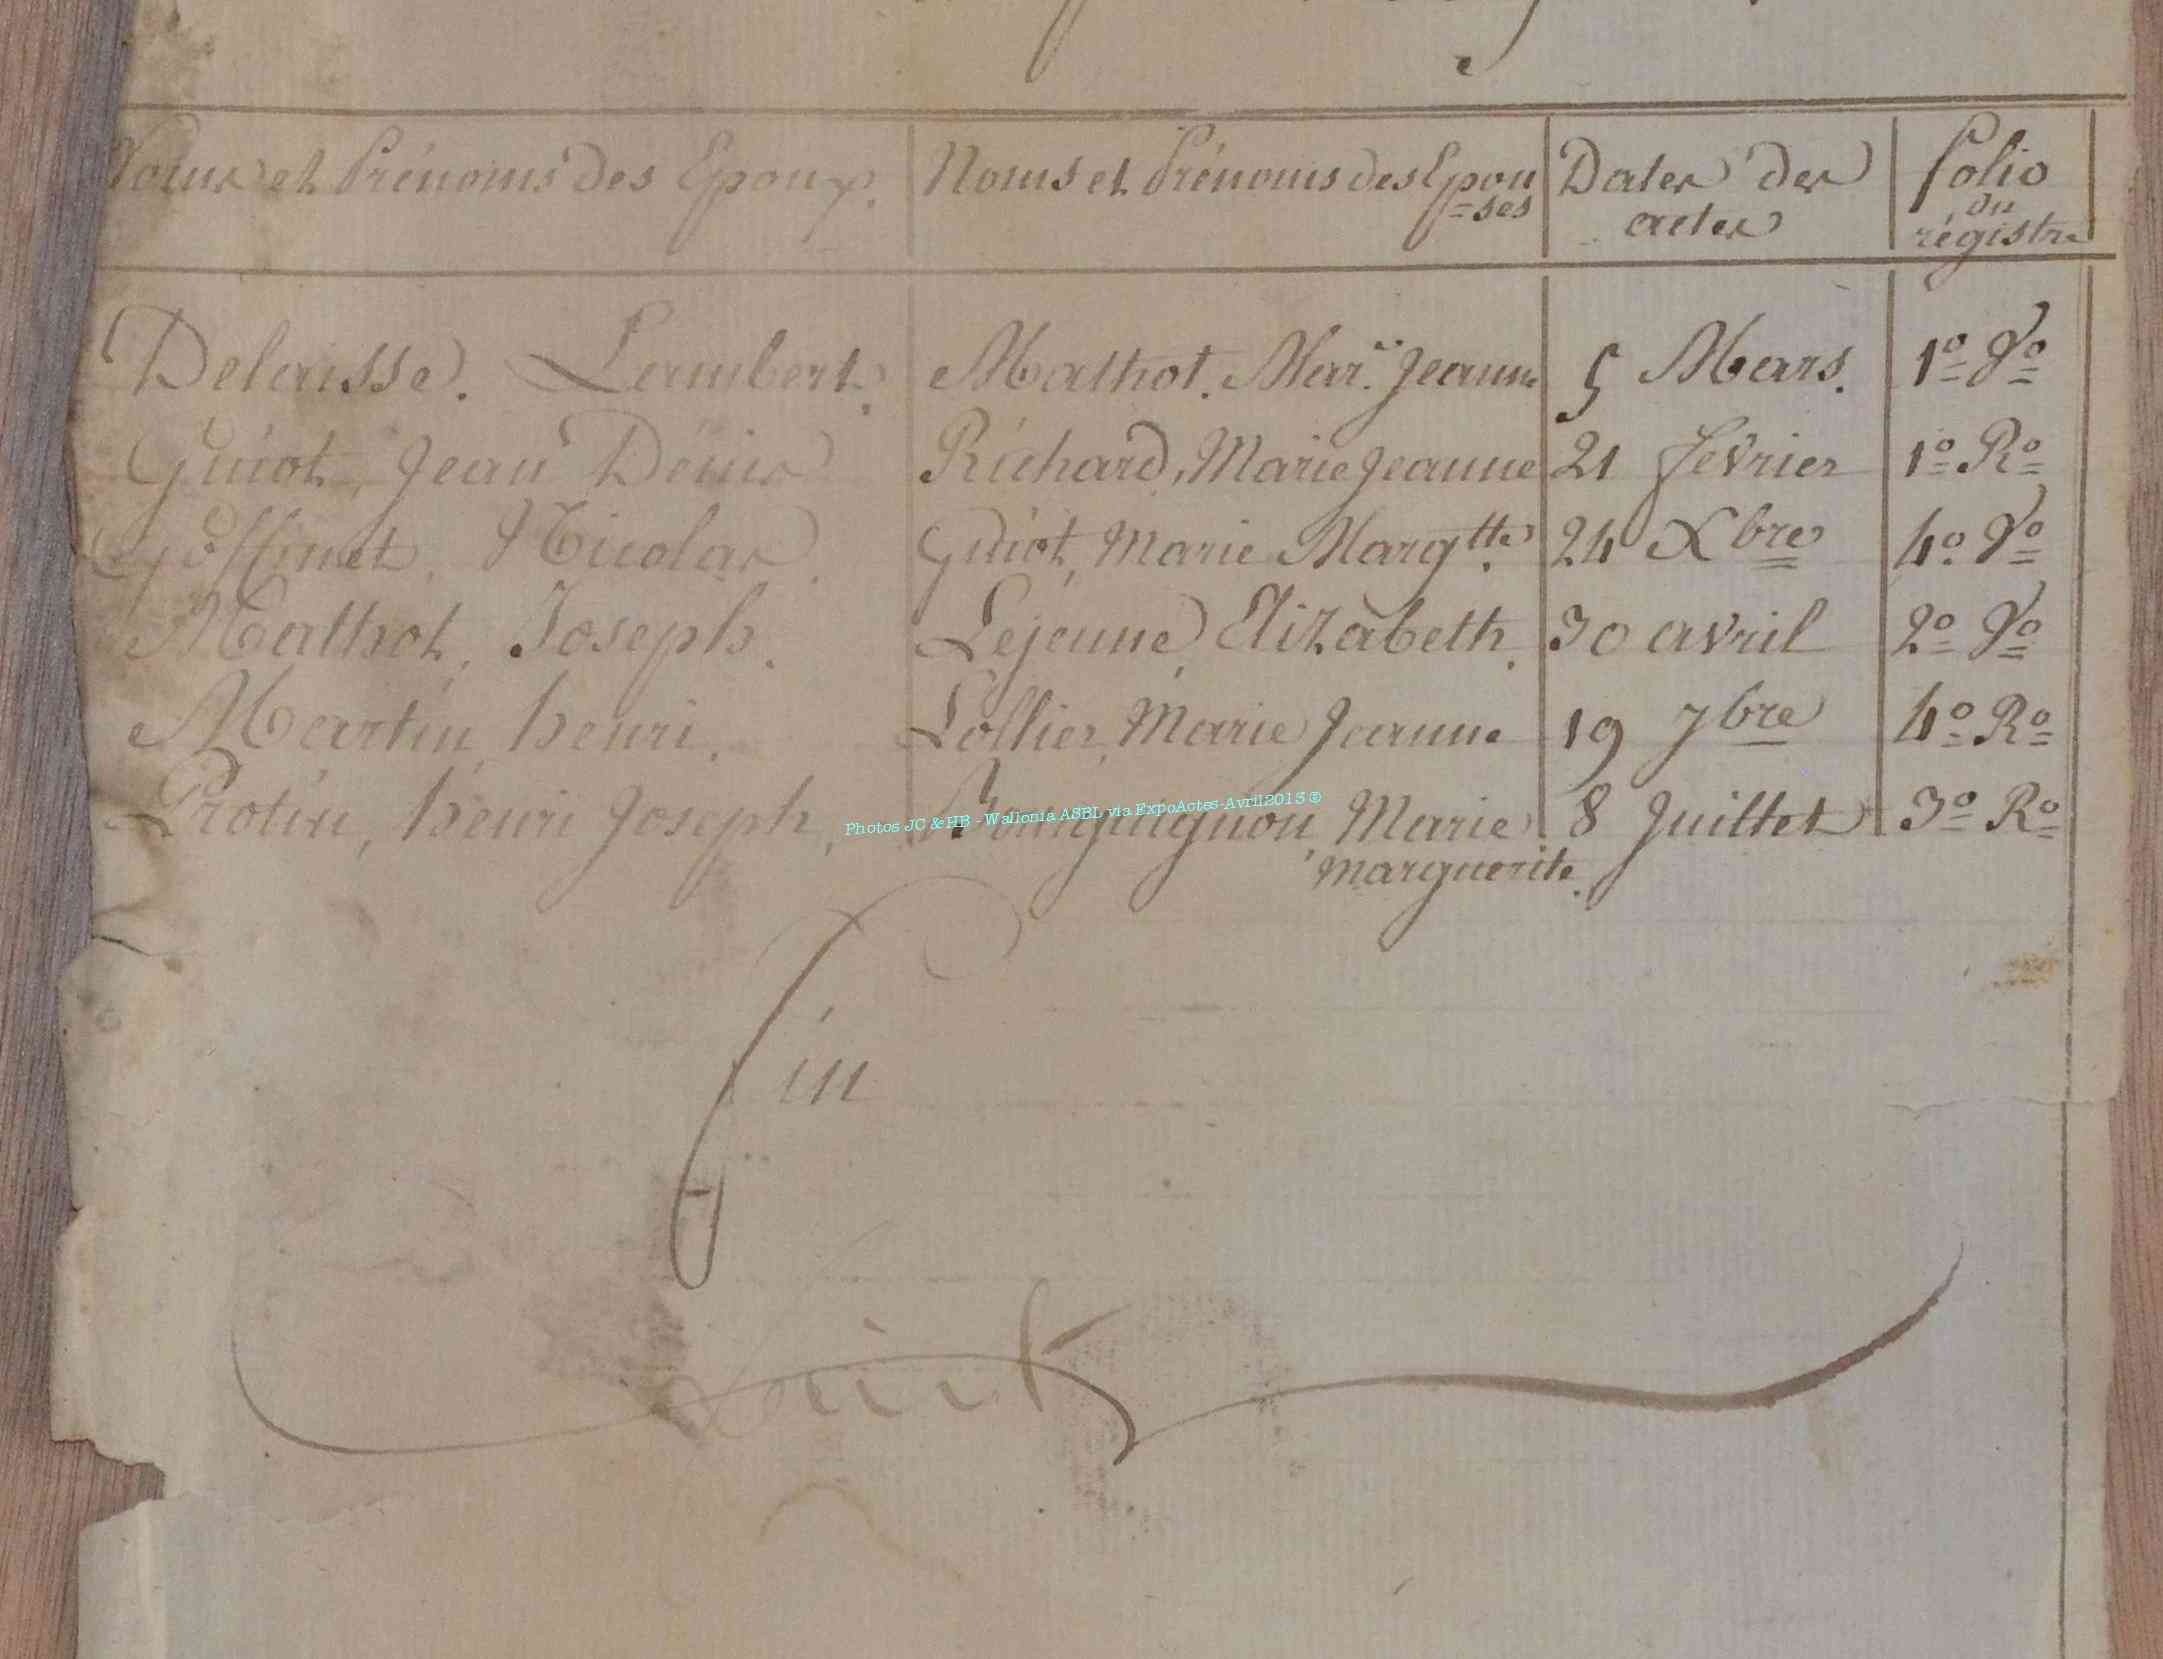 Noms et Prénoms des Epoux. Noms et Prénoms des Epou Dates des folio
=ses actes du
régistre
Delaisse. Lambert. Mathot. Mar. Jeanne 5 Mars. 1º Vº
Guiot, Jean Dénis Richard, Marie Jeanne 21 fevrier 1º Rº
Goffinet, Nicolas. Guiot, Marie Margtte. 24 Xbre 4º Vº
Mathot, Joseph. Lejeune, Elizabeth. 30 avril 2º Vº
Martin, henri. Lollier, Marie Jeanne 19 7bre 4º Rº
Protin, henri Joseph, Bourguignon, Marie 8 Juillet 3º Rº
Marguerite.
Photos JC & HB - Wallonia ASBL via ExpoActes-Avril2015 ©
fin